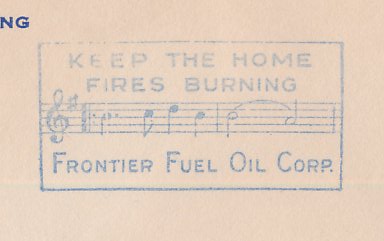 NG
KEEP THE HOME
FIRES BURNING
FRONTIER FUEL OIL CORP.